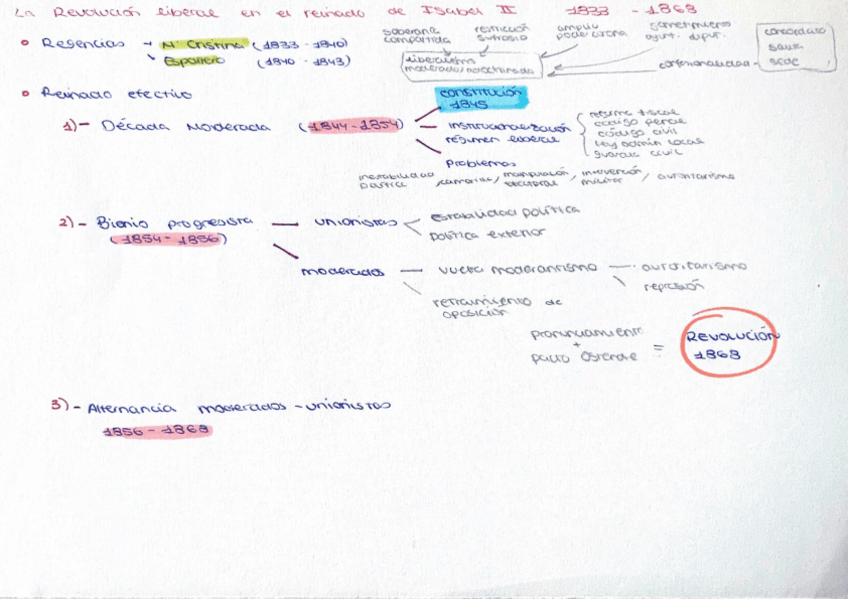 La Revolución liberal en el reinado de Isabel II 1833 - 1868
• Regencias → Mª Cristina (1833 - 1840)
↘ Espartero (1840 - 1843)
soberanía compartida
restricción sufragio
amplio poder corona
sometimiento ayunt. diput.
liberalismo moderado/
confesionalidad
concordato
santa
sede
• Reinado efectivo
1) - Década Moderada (1844 - 1854)
constitución
1845
institucionalización
régimen liberal
reforma fiscal
código penal
código civil
ley admin local
guardia civil
Problemas
inestabilidad política, camarillas, manipulación electoral, intervención militar, autoritarismo
2) - Bienio progresista
(1854 - 1856)
unionistas
estabilidad política
política exterior
moderados — vuelta moderantismo — autoritarismo
represión
retraimiento de
oposición
pronunciamiento
+
pacto Ostende
=
REVOLUCIÓN
1868
3) - Alternancia moderados - unionistas
1856 - 1868